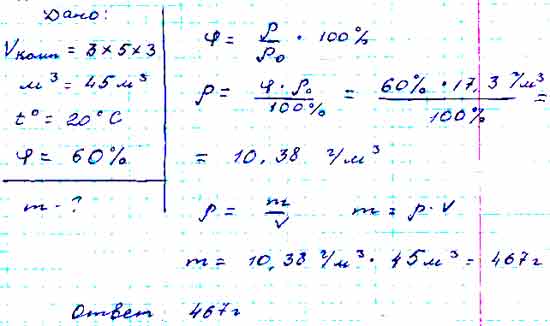 Дано:
Vкомн = 3×5×3
м³ = 45 м³
t° = 20°C
φ = 60%
m - ?
φ = ρ/ρ₀ · 100%
ρ = φ · ρ₀ / 100% = 60% · 17,3 г/м³ / 100% =
= 10,38 г/м³
ρ = m/V m = ρ · V
m = 10,38 г/м³ · 45 м³ = 467 г
Ответ 467 г